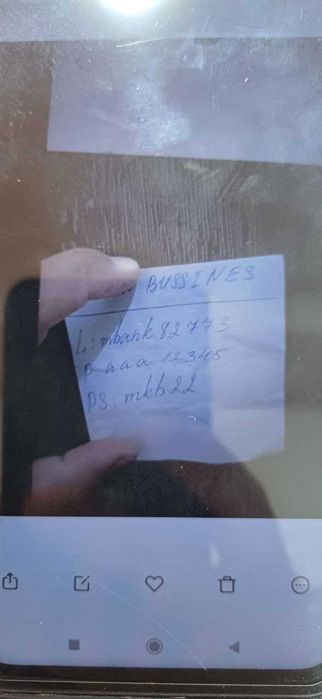 BUSSINES
L: mbank.82773
p-aaa 12345
PS: mkb22